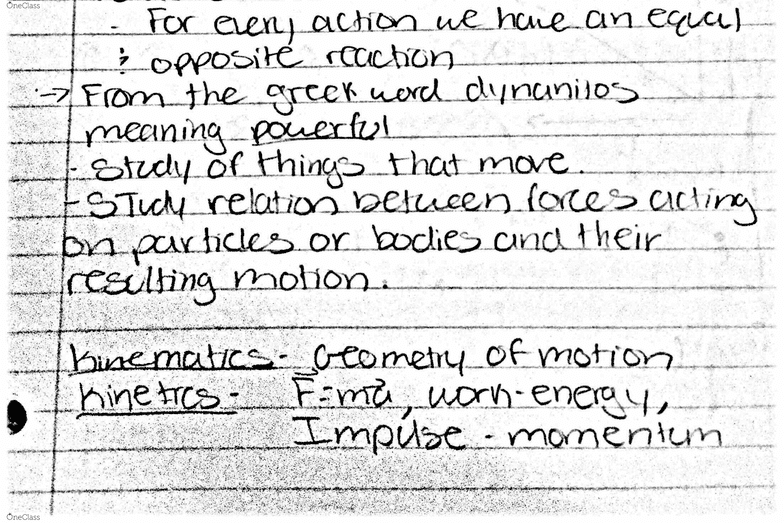 OneClass
. For every action we have an equal
& opposite reaction
→ From the greek word dynanilos
meaning powerful
- Study of things that move.
- Study relation between forces acting
on particles or bodies and their
resulting motion.
Kinematics - Geometry of motion
Kinetics - F=ma, work-energy,
Impulse - momentum
OneClass